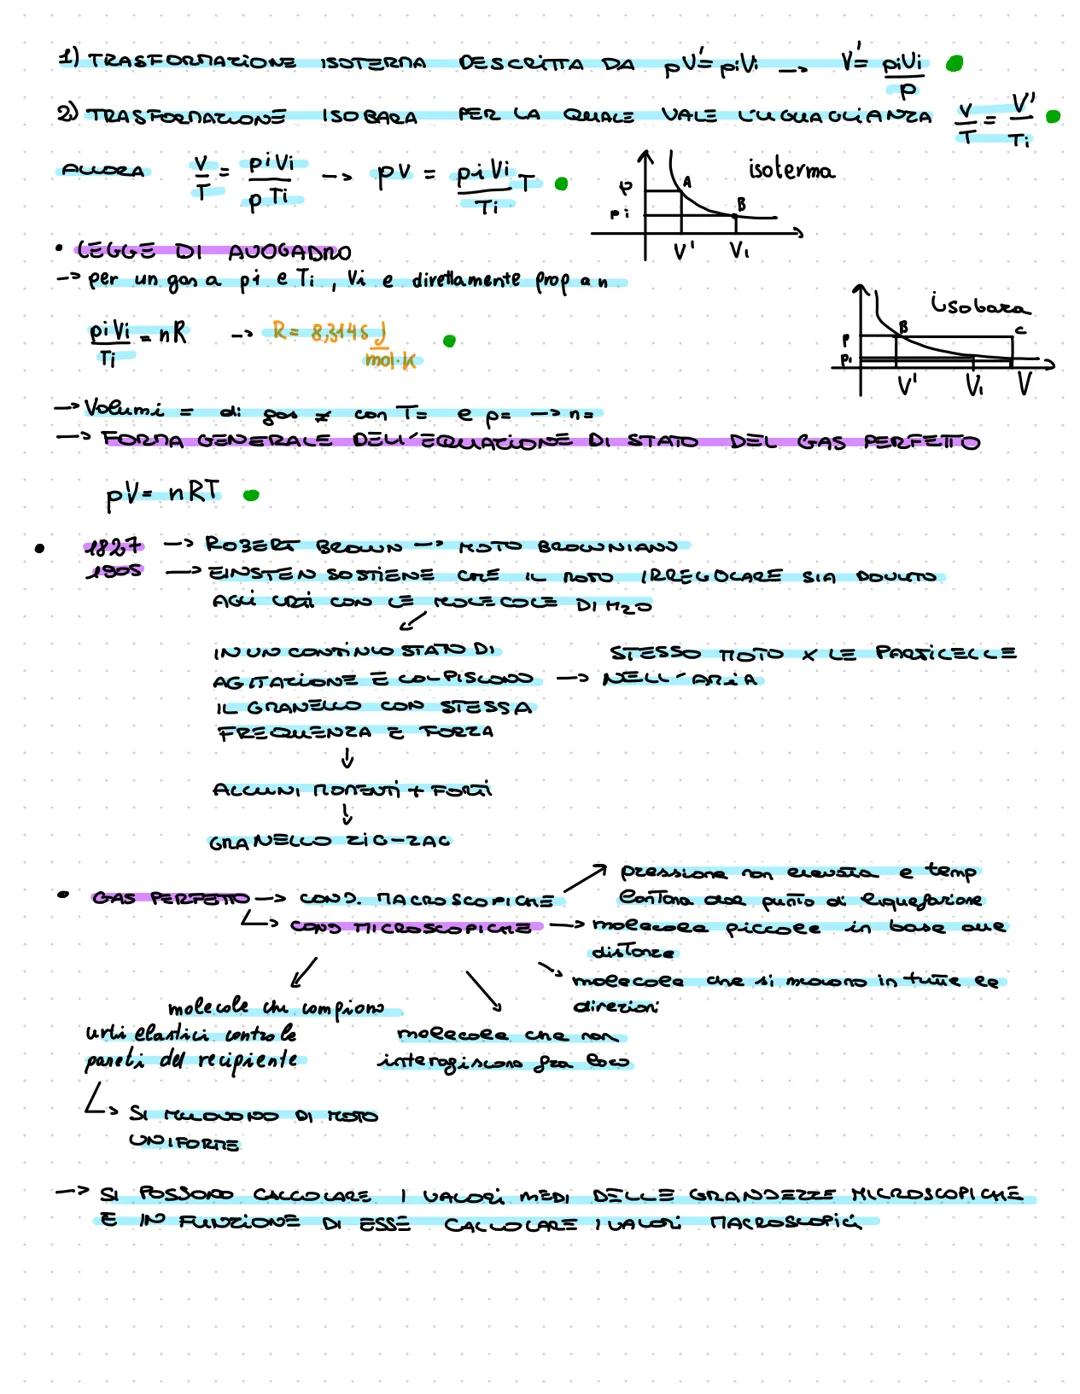 1) TRASFORMAZIONE ISOTERMA DESCRITTA DA pV'= piVi → V'= piVi/p
2) TRASFORMAZIONE ISOBARA PER LA QUALE VALE L'UGUAGLIANZA V/T = V'/Ti
ALLORA V/T = piVi/pTi → pV = piVi/Ti T
isoterma
p
A
B
pi
V' Vi
• LEGGE DI AVOGADRO
→ per un gas a pi e Ti, Vi e direttamente prop a n
piVi/Ti = nR → R= 8,3145 J/mol·K
isobara
p
B
C
pi
V' Vi V
→ Volumi = di gas ≠ con T= e p= → n=
→ FORMA GENERALE DELL'EQUAZIONE DI STATO DEL GAS PERFETTO
pV= nRT
• 1827 → ROBERT BROWN → MOTO BROWNIANO
1905 → EINSTEN SOSTIENE CHE IL MOTO IRREGOLARE SIA DOVUTO
AGLI URTI CON LE MOLECOLE DI H2O
IN UN CONTINUO STATO DI
AGITAZIONE E COLPISCONO →
IL GRANELLO CON STESSA
FREQUENZA E FORZA
STESSO MOTO X LE PARTICELLE
NELL'ARIA
↓
ALCUNI MOMENTI + FORTI
↓
GRANELLO ZIG-ZAG
• GAS PERFETTO → COND. MACROSCOPICHE
pressione non elevata e temp
lontana dal punto di liquefazione
↳ COND MICROSCOPICHE → molecole piccole in base alle
distanze
molecole che si muovono in tutte le
direzioni
molecole che compiono
urti elastici contro le
pareti del recipiente
molecole che non
interagiscono fra loro
↳ SI MUOVONO DI MOTO
UNIFORME
→ SI POSSONO CALCOLARE I VALORI MEDI DELLE GRANDEZZE MICROSCOPICHE
E IN FUNZIONE DI ESSE CALCOLARE I VALORI MACROSCOPICI